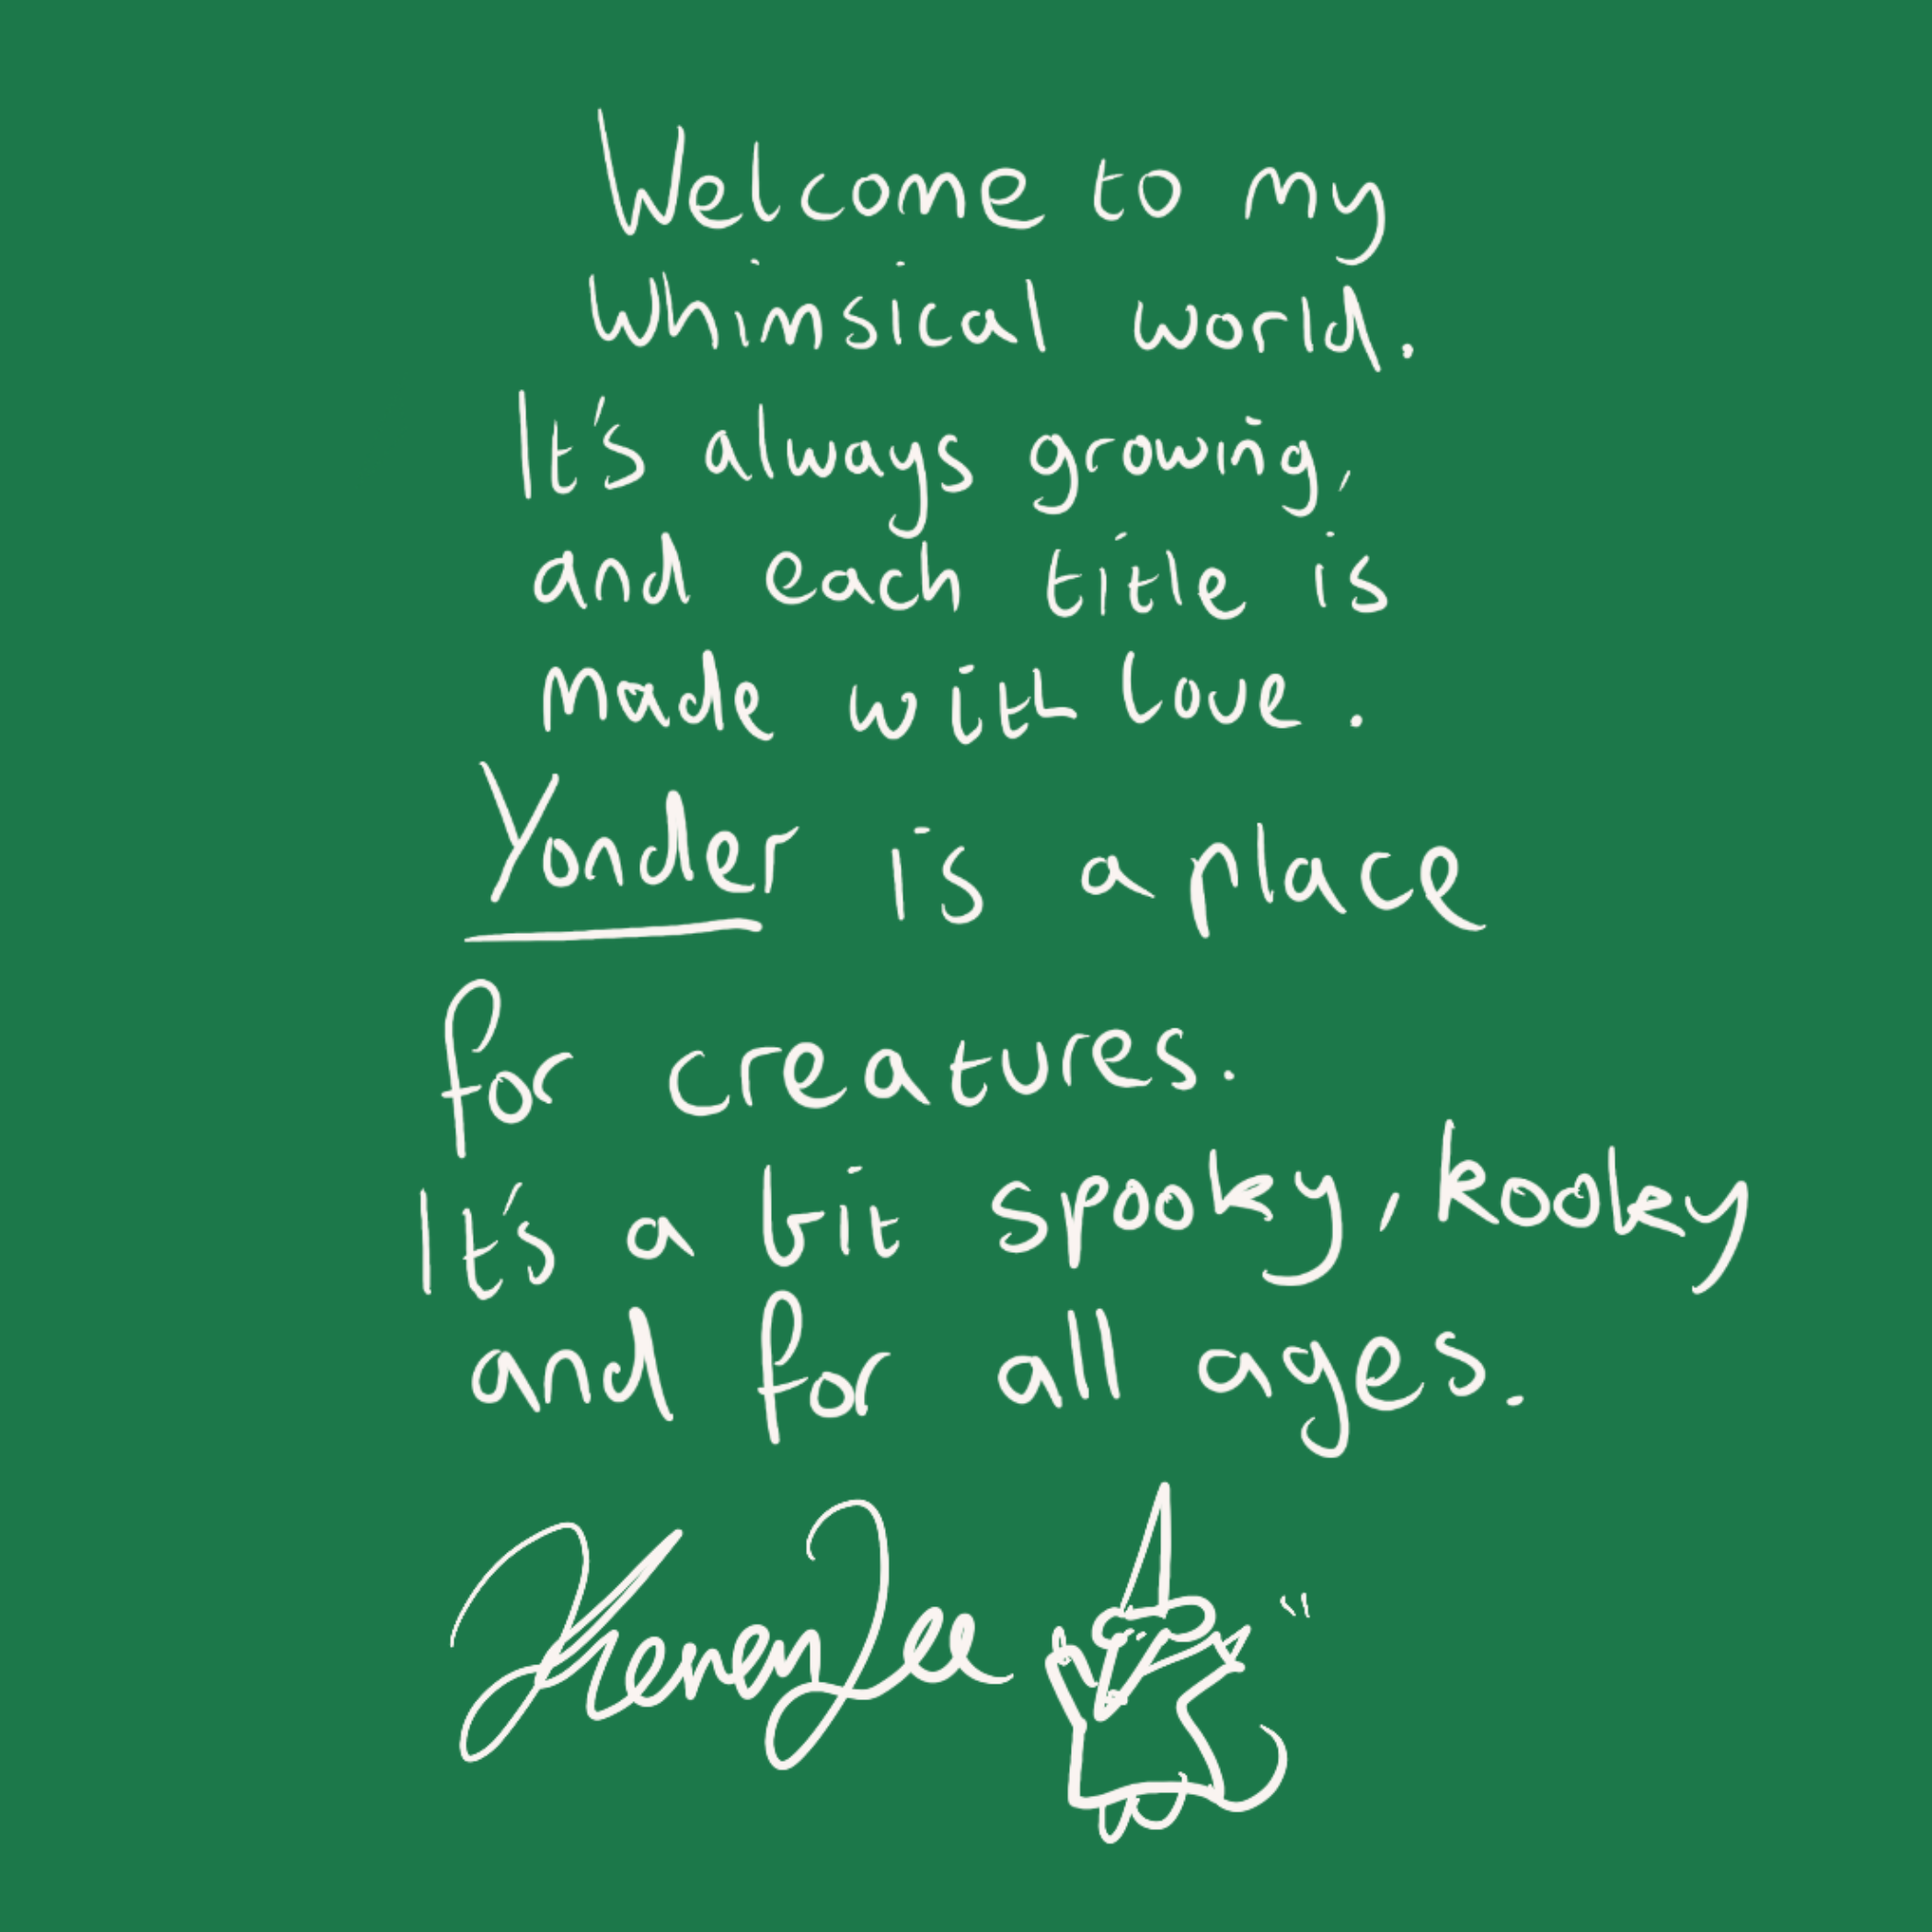 Welcome to my
whimsical world.
It's always growing,
and each title is
made with love.
Yonder is a place
for creatures.
It's a bit spooky, kooky
and for all ages.